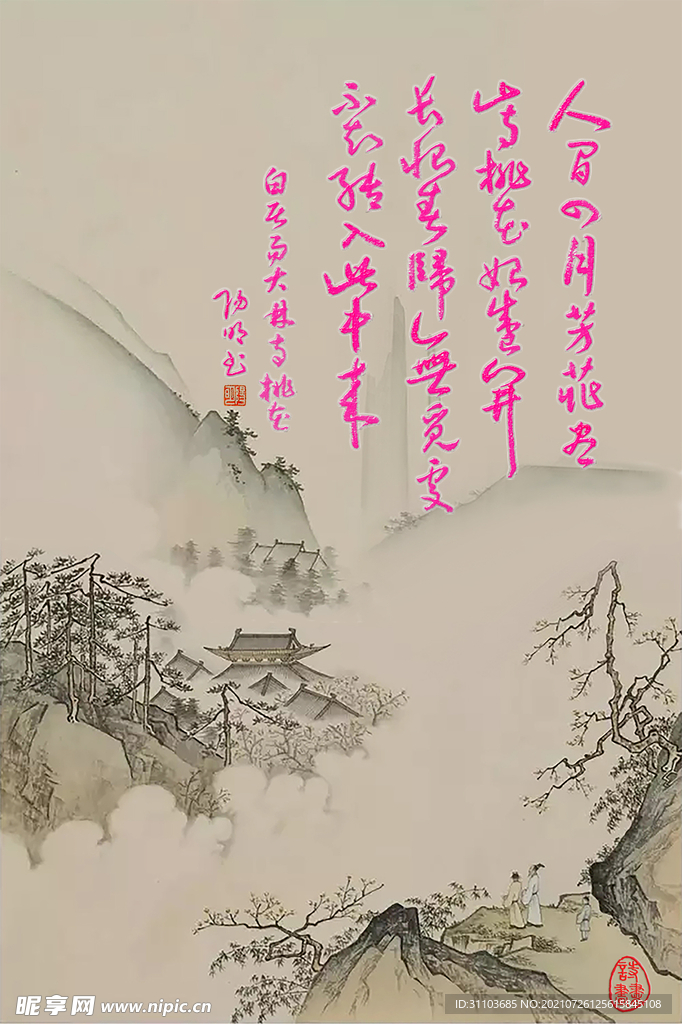 人间四月芳菲尽
山寺桃花始盛开
长恨春歸無觅處
不知转入此中来
白居易大林寺桃花
阳明书
昵享网 www.nipic.cn
ID:31103685 NO:20210726125615845108